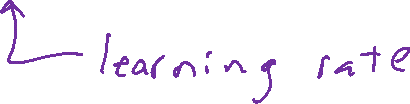 learning rate